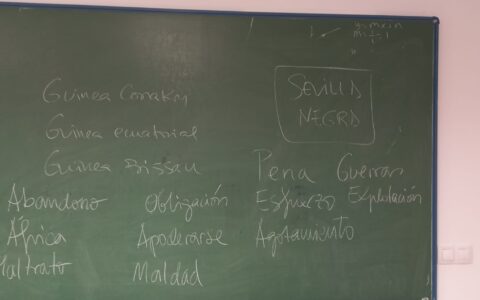 y=mx+n
SEVILLA
NEGRA
Guinea Conakry
Guinea ecuatorial
Guinea Bissau
Pena Guerras
Abandono Obligación Esfuerzo Explotación
África Apoderarse Agotamiento
Maltrato Maldad